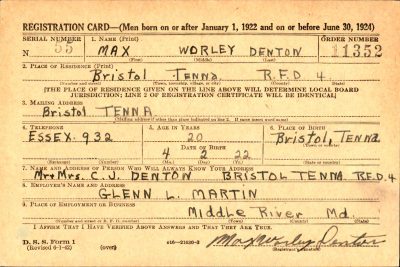 REGISTRATION CARD—(Men born on or after January 1, 1922 and on or before June 30, 1924)
SERIAL NUMBER 1. NAME (Print) ORDER NUMBER
N 55 MAX WORLEY DENTON 11352
(First) (Middle) (Last)
2. PLACE OF RESIDENCE (Print)
Bristol Tenna. R.F.D. 4.
(Number and street) (Town, township, village, or city) (County) (State)
[THE PLACE OF RESIDENCE GIVEN ON THE LINE ABOVE WILL DETERMINE LOCAL BOARD
JURISDICTION; LINE 2 OF REGISTRATION CERTIFICATE WILL BE IDENTICAL]
3. MAILING ADDRESS
Bristol TENNA
[Mailing address if other than place indicated on line 2. If same insert word same]
4. TELEPHONE 5. AGE IN YEARS 6. PLACE OF BIRTH
ESSEX. 932 20 Bristol,
DATE OF BIRTH (Town or county)
4 2 22 Tenna
(Mo.) (Day) (Yr.) (State or country)
7. NAME AND ADDRESS OF PERSON WHO WILL ALWAYS KNOW YOUR ADDRESS
Mr+Mrs. C. J. DENTON BRISTOL TENNA. R.F.D. 4
8. EMPLOYER'S NAME AND ADDRESS
GLENN L. MARTIN
9. PLACE OF EMPLOYMENT OR BUSINESS
Middle River Md.
(Number and street or R. F. D. number) (Town) (County) (State)
I AFFIRM THAT I HAVE VERIFIED ABOVE ANSWERS AND THAT THEY ARE TRUE.
D. S. S. Form 1
(Revised 6-1-42) (over) 16—21630-2 Max Worley Denton